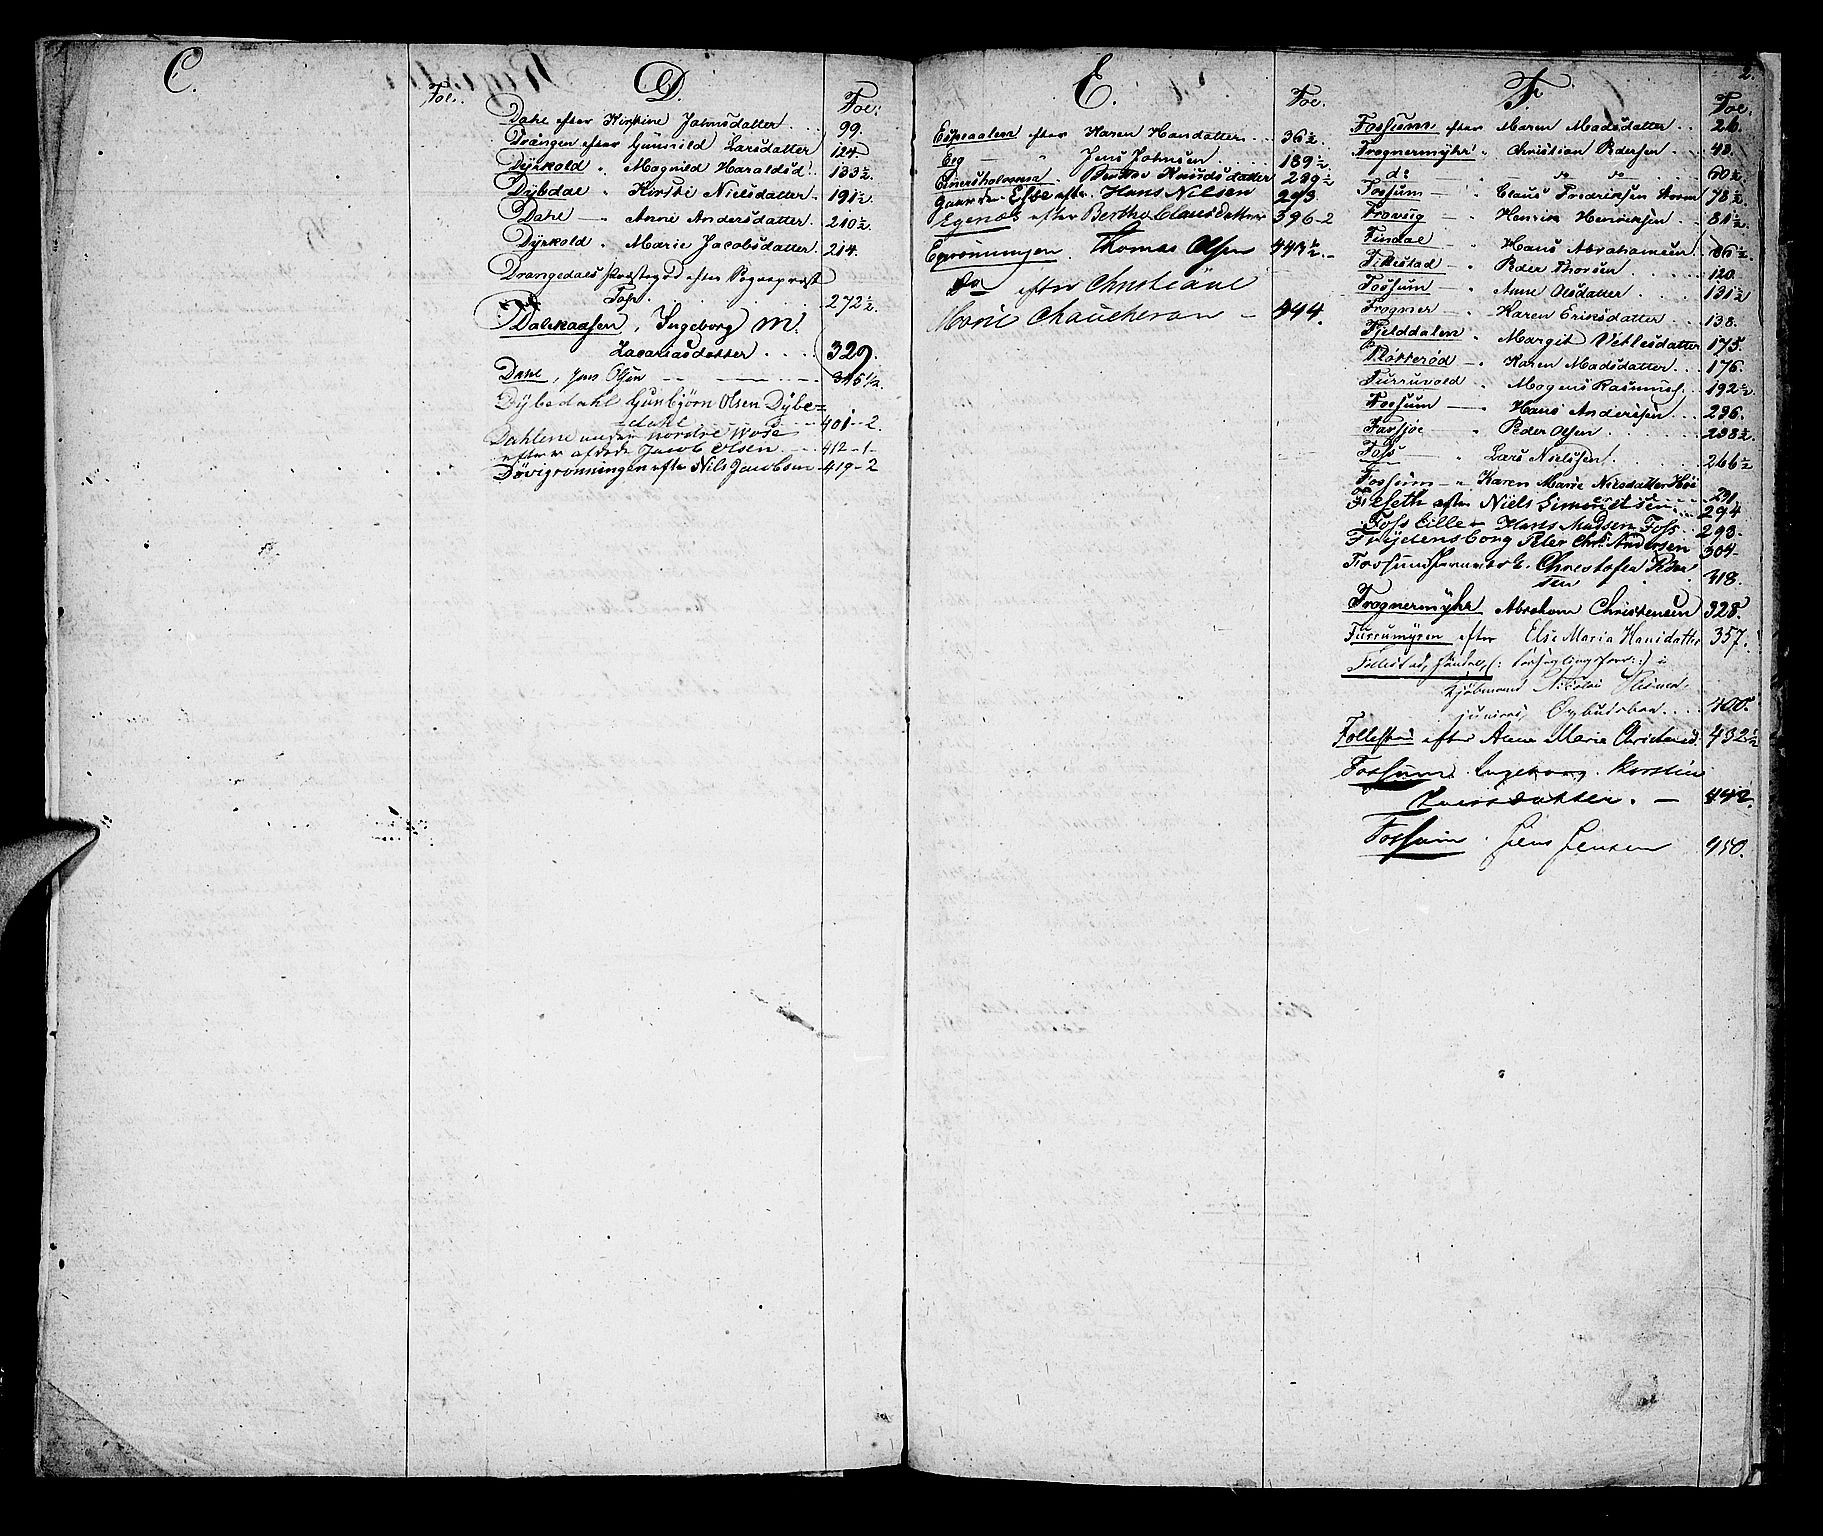 C.
Fol.
D.
Fol.
Dahl efter Kirstine Johnsdatter . . . 99.
Drangen efter Gunnild Larsdatter 124.
Dyrkold " Magnild Haraldsd. 133½.
Dybdal " Kirsti Nielsdatter . 191½.
Dahl — Anne Andersdatter . 210½.
Dyrkold " Marie Jacobsdatter . 214.
Drangedals Præstegd efter Sogneprest
Foss . 272½.
Dalskaasen, Ingeborg M.
Zacariasdatter . . . . 329.
Dahl, Jens Olsen — — — 345½.
Dybedahl Gunbjørn Olsen Dybe=
dahl 401-2.
Dahlene under Nordre Wose
efter afdøde Jacob Olsen. — 412-1-
Døvigrønningen efter Nils Jacobsen 419-2
E.
Fol.
Espeaalen efter Karen Hansdatter . . 36½.
Eeg — " Jens Johnsen . . . 189½
Einersholmene " Knudsdatter 239½
Hans Nilsen 293.
Egenæs efter Berthe Clausdatter 396-2
Egrønningen . Thomas Olsen 443½.-
Do efter Christiane
Marie Chaucheron — 444.
2.
F.
Fol.
Fossum efter Maren Madsdatter . . 26.
Frognermyhr " Christian Pedersen . . 48.
do — " do do . . 60½.
Fossum — " Claus Fredriksen Storm 78½.
Frovug — " Henrik Henriksen . . 81½.
Findal " Hans Abrahamsen 86½.
Fillestad — " Peder Thorsen . . . 120.
Fossum — " Anne Olsdatter . . . 131½
Frogner — " Karen Eriksdatter . . 138.
Fjelddalen " Margit Vetlesdatter 175.
Flötterød " Karen Madsdatter . . 176.
Furruvold " Mogens Rasmus. . . 192½.
Fossum — " Hans Andersen . . . 236.
Farsjøe " Peder Olsen . . . . 238½.
Foss — " Lars Nielsen . . . 266½
Fossum — " Karen Marie Nilsdatter
291.
efter Niels Simondsen . . . 294
Foss Lille " Hans Madsen Foss . . 293.
Frydensborg Peter Chr. Andersen 304-
Christofer Peder
sen 318.
Frognermyhr Abraham Christensen 328.
Furrumyren efter Else Maria Hansdatter 357.
Kjøbmand Nikolai
juniors Opbudsbo . . . 400.
Follestad efter Anne Marie Christensd. 432½
Fossum . Ingeborg . Kirstine
Larsdatter . — 442.
Fossum . Jens Jensen 450.